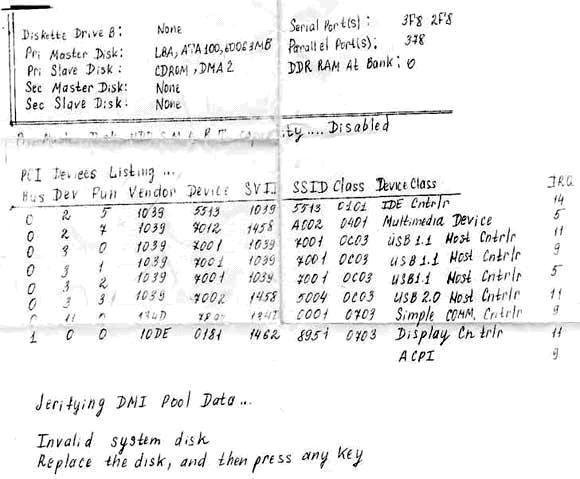 Diskette Drive B: None Serial Port(s): 3F8 2F8
Pri Master Disk: LBA, ATA100, 60063MB Parallel Port(s): 378
Pri Slave Disk: CDROM, DMA2 DDR RAM At Bank: 0
Sec Master Disk: None
Sec Slave Disk: None
Disk Disabled
PCI Devices Listing ...
Bus Dev Fun Vendor Device SVID SSID Class Device Class IRQ
0 2 5 1039 5513 1039 5513 0101 IDE Cntrlr 14
0 2 7 1039 7012 1458 A002 0401 Multimedia Device 5
0 3 0 1039 7001 1039 7001 0C03 USB 1.1 Host Cntrlr 11
0 3 1 1039 7001 1039 7001 0C03 USB 1.1 Host Cntrlr 9
0 3 2 1039 7001 1039 7001 0C03 USB1.1 Host Cntrlr 5
0 3 3 1039 7002 1458 5004 0C03 USB 2.0 Host Cntrlr 11
0 11 0 0001 0703 Simple COMM. Cntrlr 9
1 0 0 10DE 0181 1462 8951 0703 Display Cntrlr 11
ACPI 9
Jerifying DMI Pool Data ...
Invalid system disk
Replace the disk, and then press any key